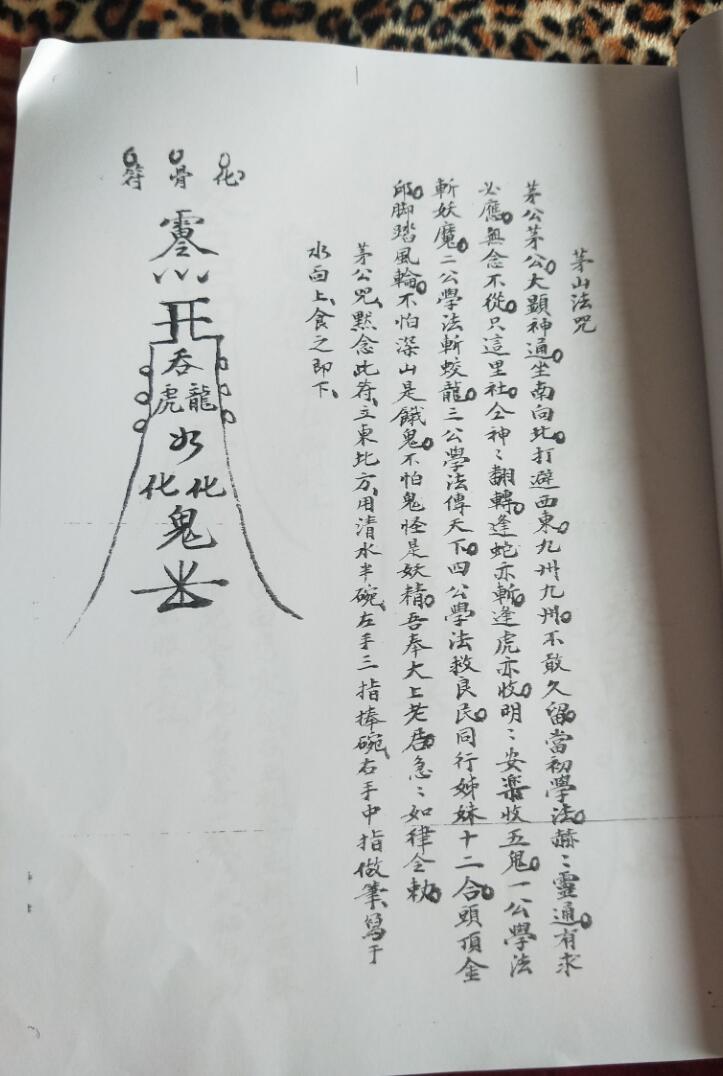 茅山法咒
茅公茅公。大顯神通。坐南向北。打避西東。九州九州。不敢久留。當初學法。赫〻靈通。有求
必應。無念不從。只這里社。仝神〻翻轉。逢蛇亦斬。逢虎亦收。明〻安樂收五鬼。一公學法
斬妖魔。二公學法斬蛟龍。三公學法傳天下。四公學法救良民。同行姊妹十二合。頭頂金
邱。脚踏風輪。不怕深山是餓鬼。不怕鬼怪是妖精。吾奉大上老君。急〻如律令勅。
茅公咒、默念此符、立東北方、用清水半碗、左手三指捧碗、右手中指做筆、寫于
水面上、食之即下、
化骨符
吞
龍虎
化化
鬼